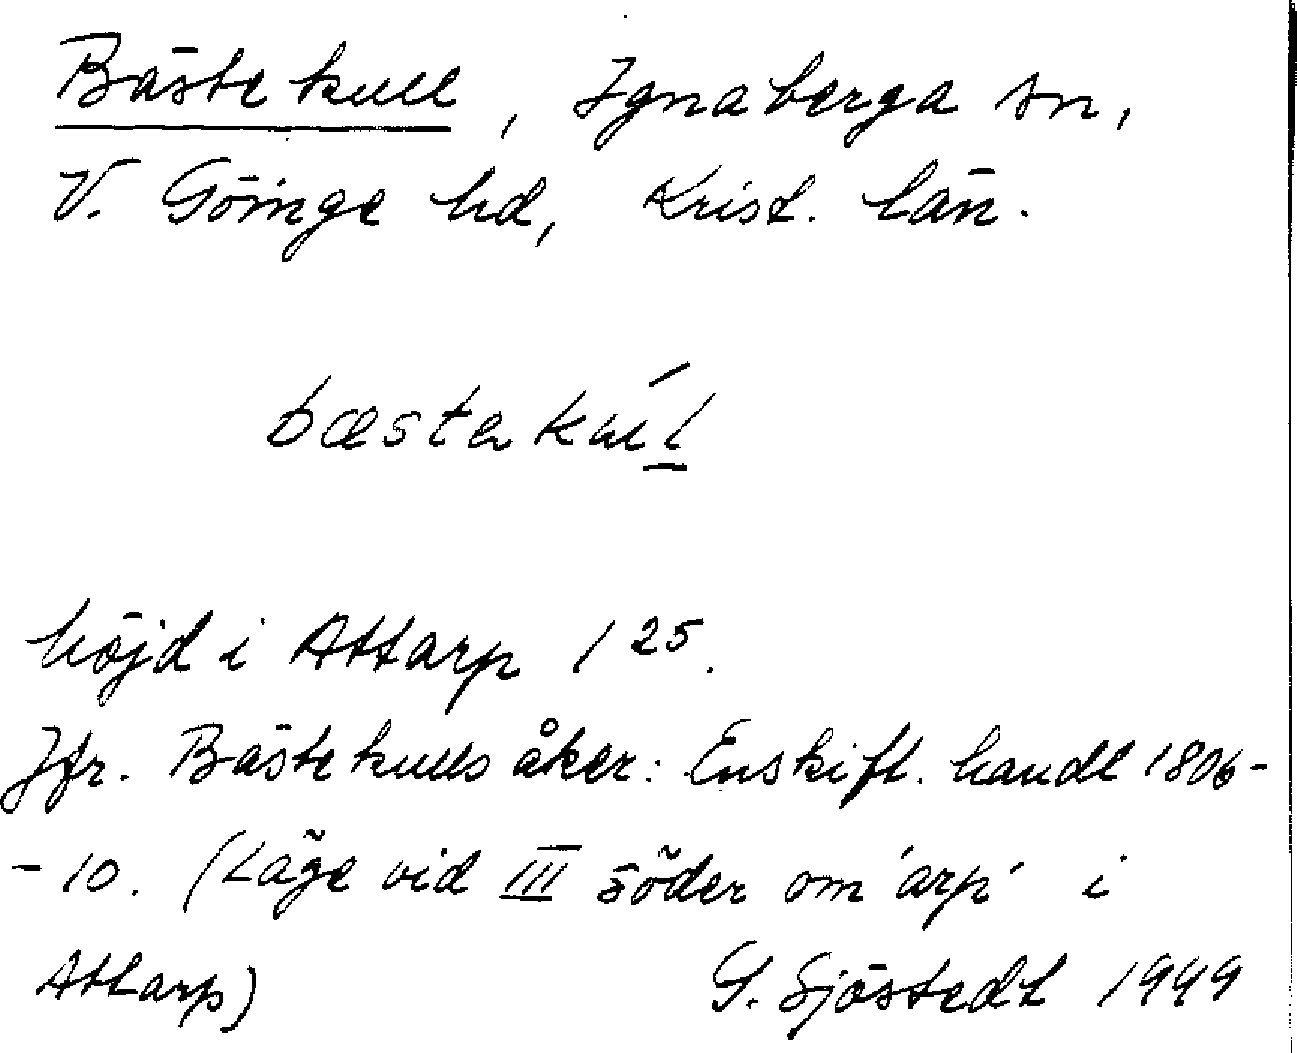 Bästekull, Ignaberga sn,
V. Göinge hd, Krist. län.
bæstəkúl̲
höjd i Attarp 1²⁵.
Jfr. Bästekulls åker: Enskift. handl 1806-
-10. (Läge vid III söder om 'arp' i
Attarp)
G. Sjöstedt 1949